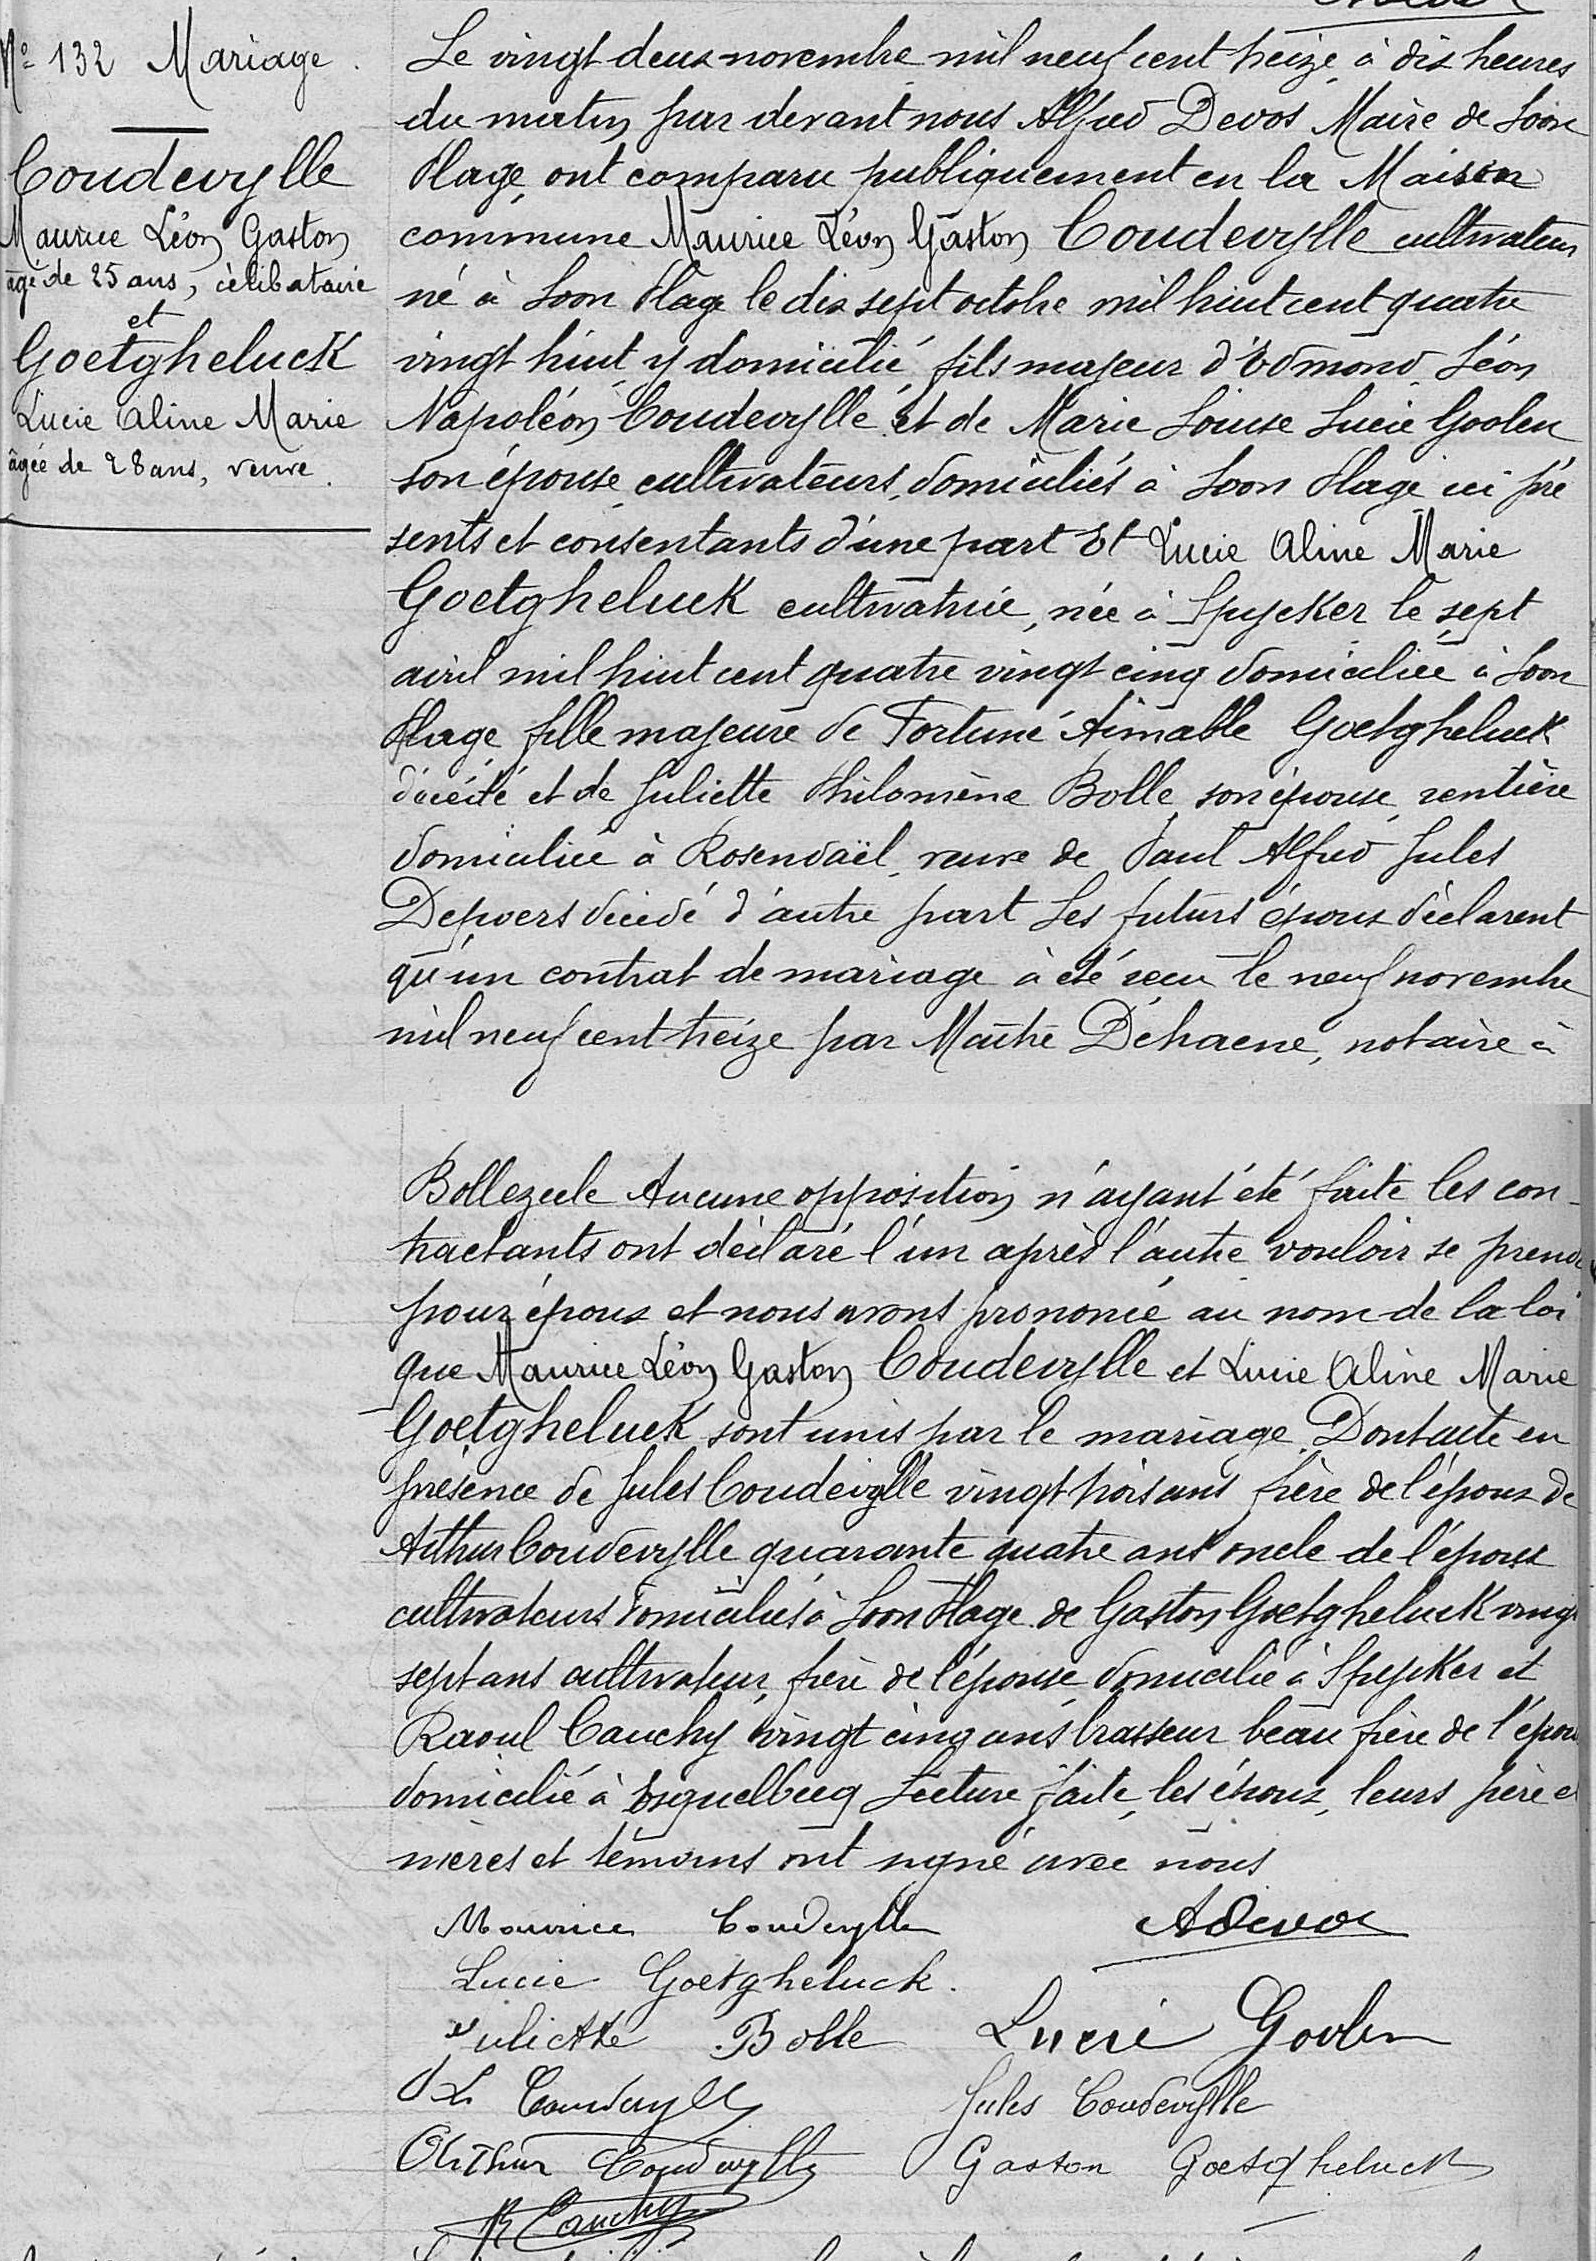 N° 132 Mariage.
Coudevylle
Maurice Léon Gaston
âgé de 25 ans, célibataire
et
Goetgheluck
Lucie Aline Marie
âgée de 28 ans, veuve.
Le vingt deux novembre mil neuf cent treize à dix heures
du matin, par devant nous Alfred Devos Maire de Loon
Plage, ont comparu publiquement en la Maison
commune Maurice Léon Gaston Coudevylle cultivateur
né à Loon Plage le dix sept octobre mil huit cent quatre
vingt huit y domicilié, fils majeur d'Edmond Léon
Napoléon Coudevylle et de Marie Louise Lucie Goolen
son épouse cultivateurs, domiciliés à Loon Plage ici pré
sents et consentants d'une part Et Lucie Aline Marie
Goetgheluck cultivatrice, née à Spycker le sept
avril mil huit cent quatre vingt cinq domiciliée à Loon
Plage, fille majeure de Fortuné Aimable Goetgheluck
décédé et de Juliette Philomène Bolle, son épouse, rentière
domiciliée à Rosendaël, veuve de Paul Alfred Jules
Depoers décédé d'autre part Les futurs époux déclarent
qu'un contrat de mariage à été recu le neuf novembre
mil neuf cent treize par Maître Dehaene, notaire à
Bollezeele Aucune opposition n'ayant été faite les con-
tractants ont déclaré l'un après l'autre vouloir se prendre
pour époux et nous avons prononcé au nom de la loi
que Maurice Léon Gaston Coudevylle et Lucie Aline Marie
Goetgheluck sont unis par le mariage. Dont acte en
présence de Jules Coudevylle vingt trois ans frère de l'époux de
Arthur Coudevylle quarante quatre ans oncle de l'époux
cultivateurs domiciliés à Loon Plage de Gaston Goetgheluck vingt
sept ans cultivateur, frère de l'épouse domicilié à Spycker et
Raoul Cauchy vingt cinq ans brasseur beau frère de l'épou
domicilié à Esquelbecq Lecture faite, les époux, leurs père et
mères et témoins ont signé avec nous
Maurice Coudevylle ADevos
Lucie Goetgheluck.
Juliette Bolle Lucie Goolen
L Coudevylle Jules Coudevylle
Arthur Coudevylle Gaston Goetgheluck
R Cauchy